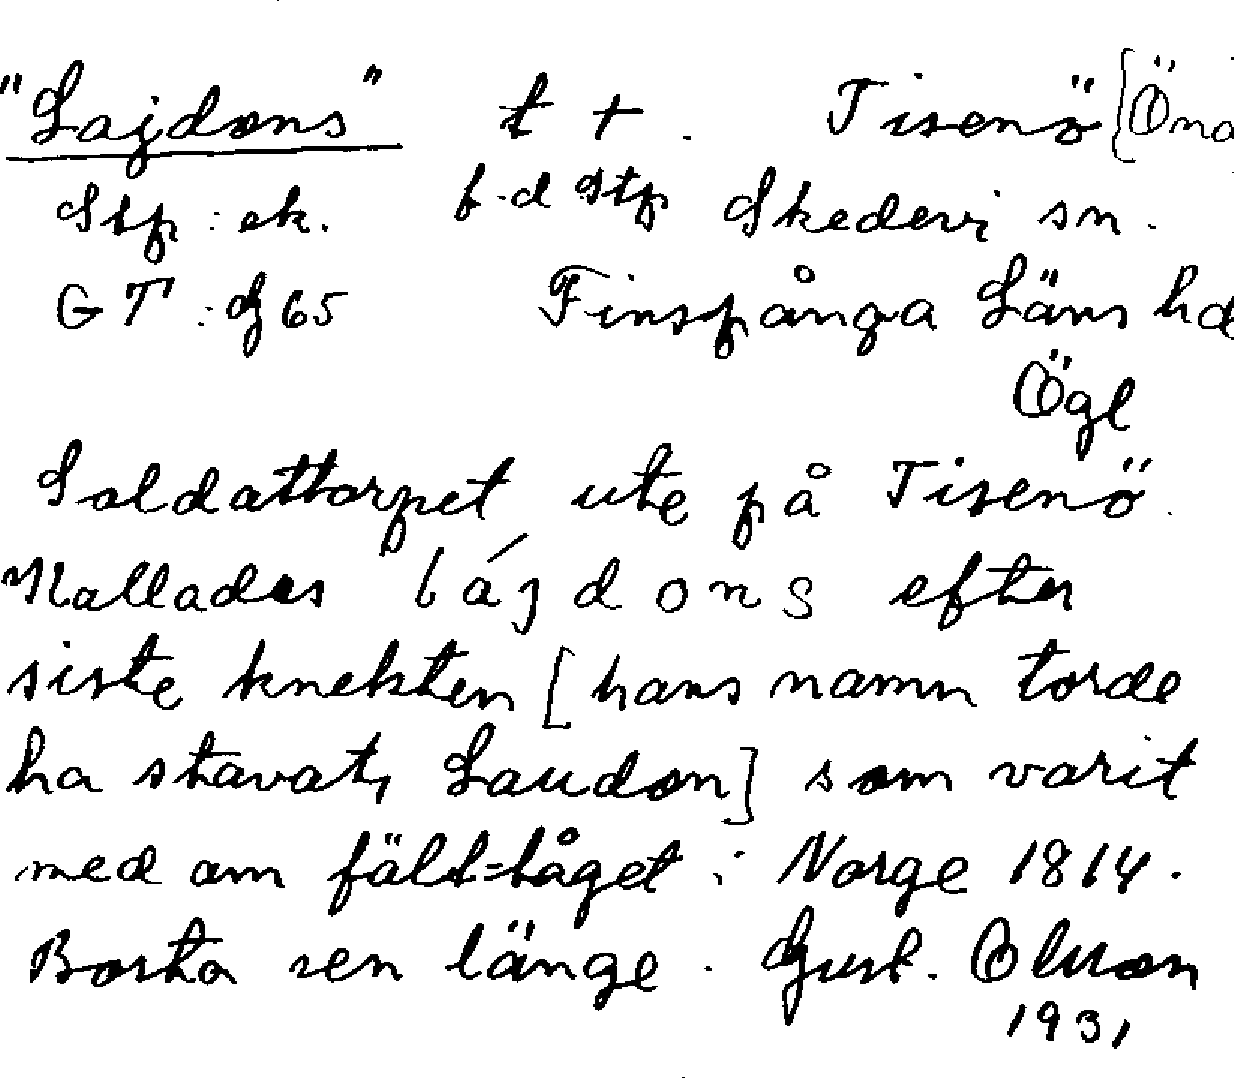 "Lajdons" t + . Tisenö [Öna
Stp : ek. f.d Stp Skedevi sn.
GT : dg 65 Finspånga Läns hd
Ögl
Soldattorpet ute på Tisenö.
Kallades lájdons efter
siste knekten [hans namn torde
ha stavats Laudon] som varit
med om fält=tåget i Norge 1814.
Borta sen länge. Gust. Olsson
1931